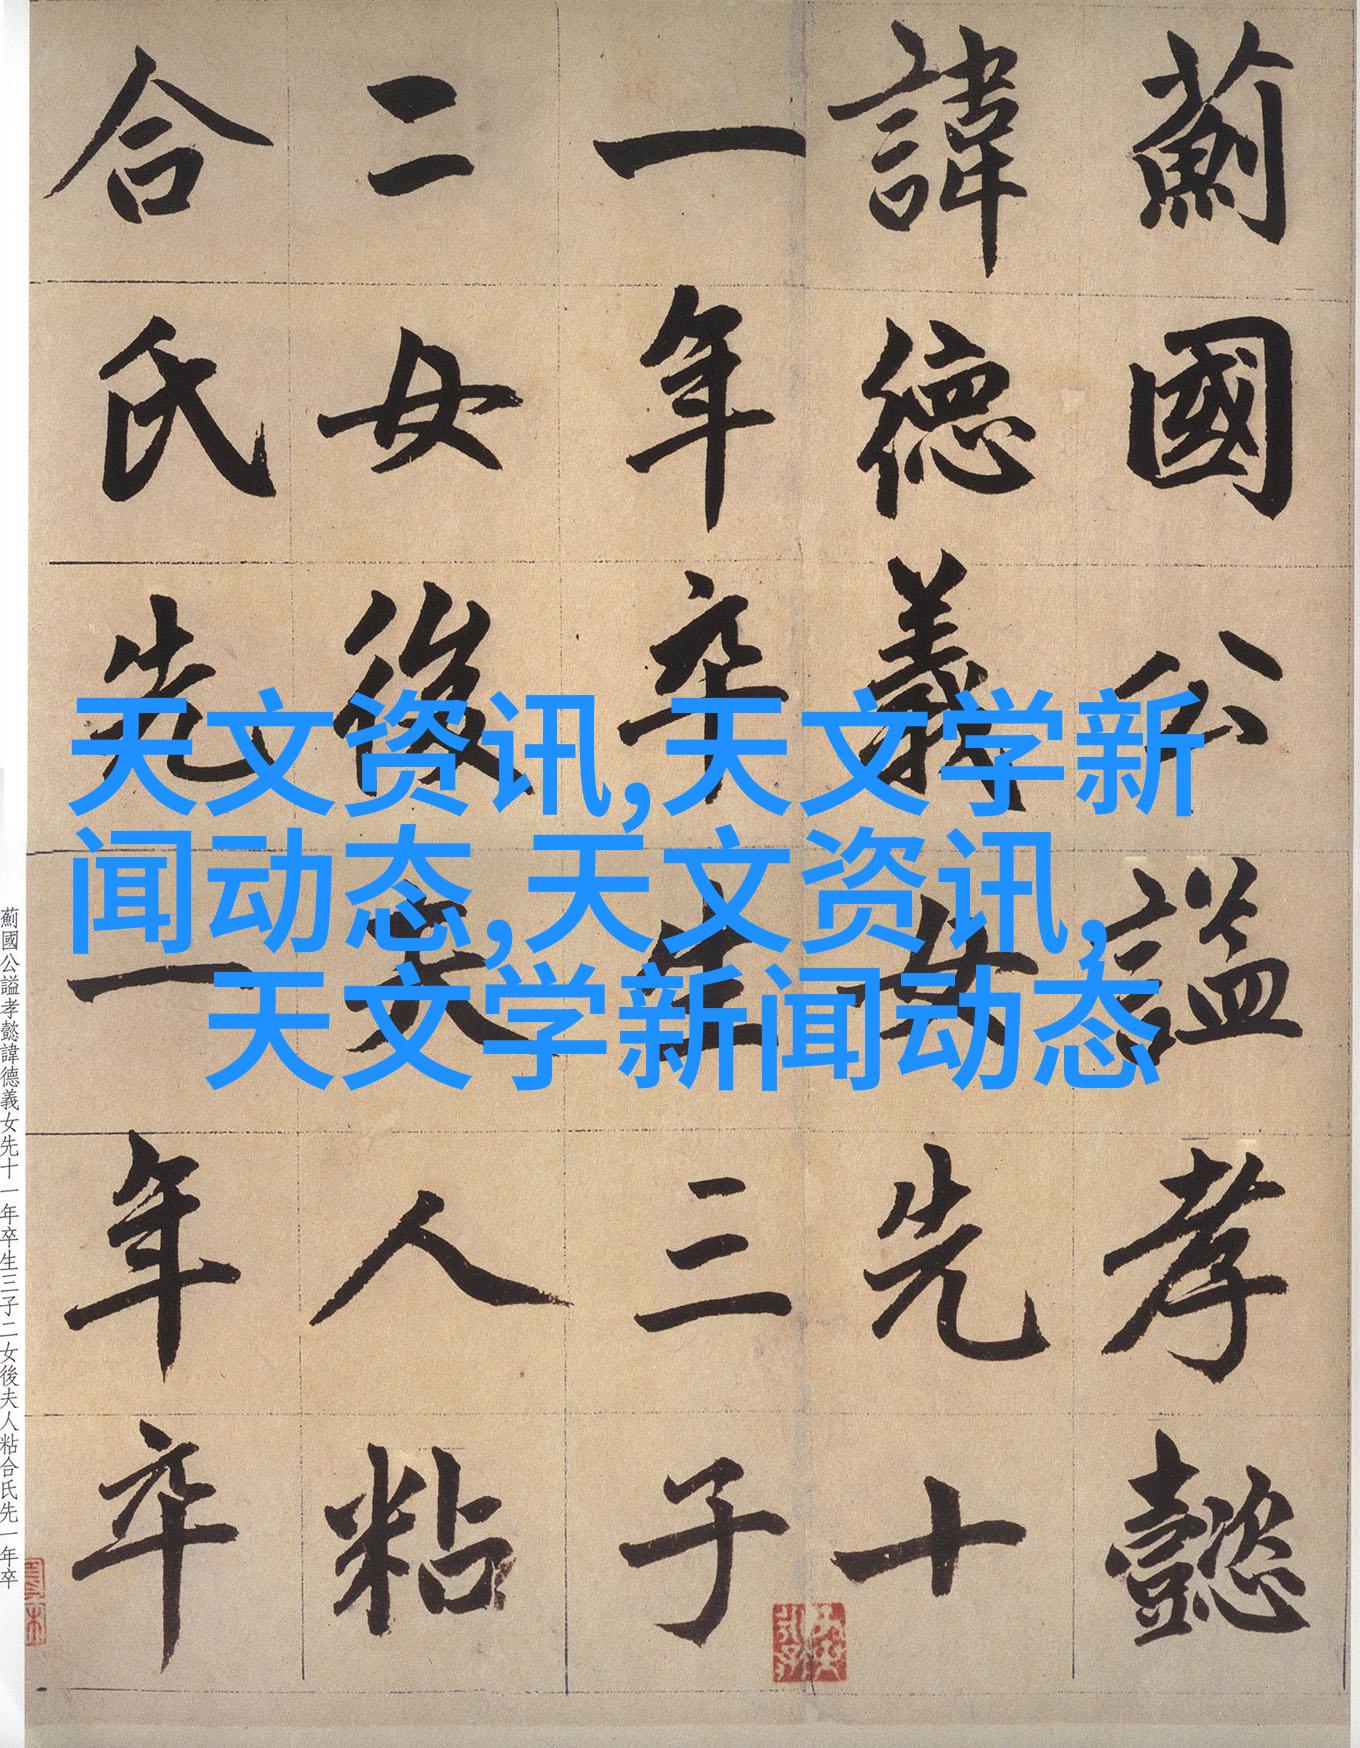 薊國公謚孝懿
諱德義女先十
一年卒生三子
二女後夫人粘
合氏先一年卒
天文资讯,天文学新
闻动态,天文资讯,
天文学新闻动态
薊國公謚孝懿諱德義女先十一年卒生三子二女後夫人粘合氏先一年卒